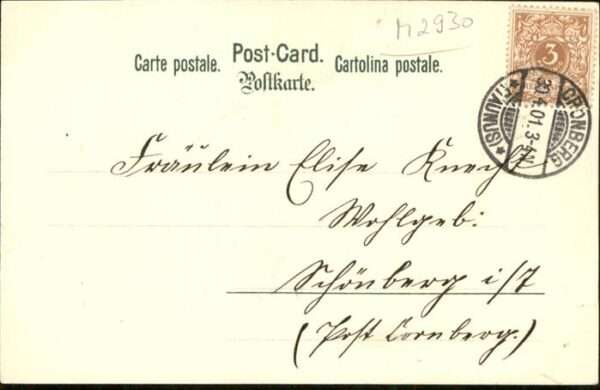 M2930
Post-Card.
Carte postale. Cartolina postale.
Postkarte.
3
CRONBERG
30.4.01.3-4N
*(TAUNUS)*
Fräulein Elise Knecht
Wohlgeb:
Schönberg i/T
(Post Cornberg.)